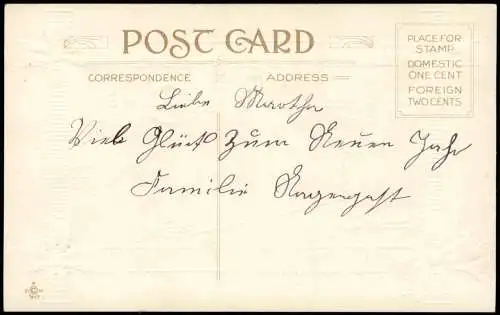 POST CARD
PLACE FOR
STAMP
DOMESTIC
ONE CENT
FOREIGN
TWO CENTS
CORRESPONDENCE
ADDRESS
Liebe Martha
Viel Glück zum Neuen Jahr
Familie